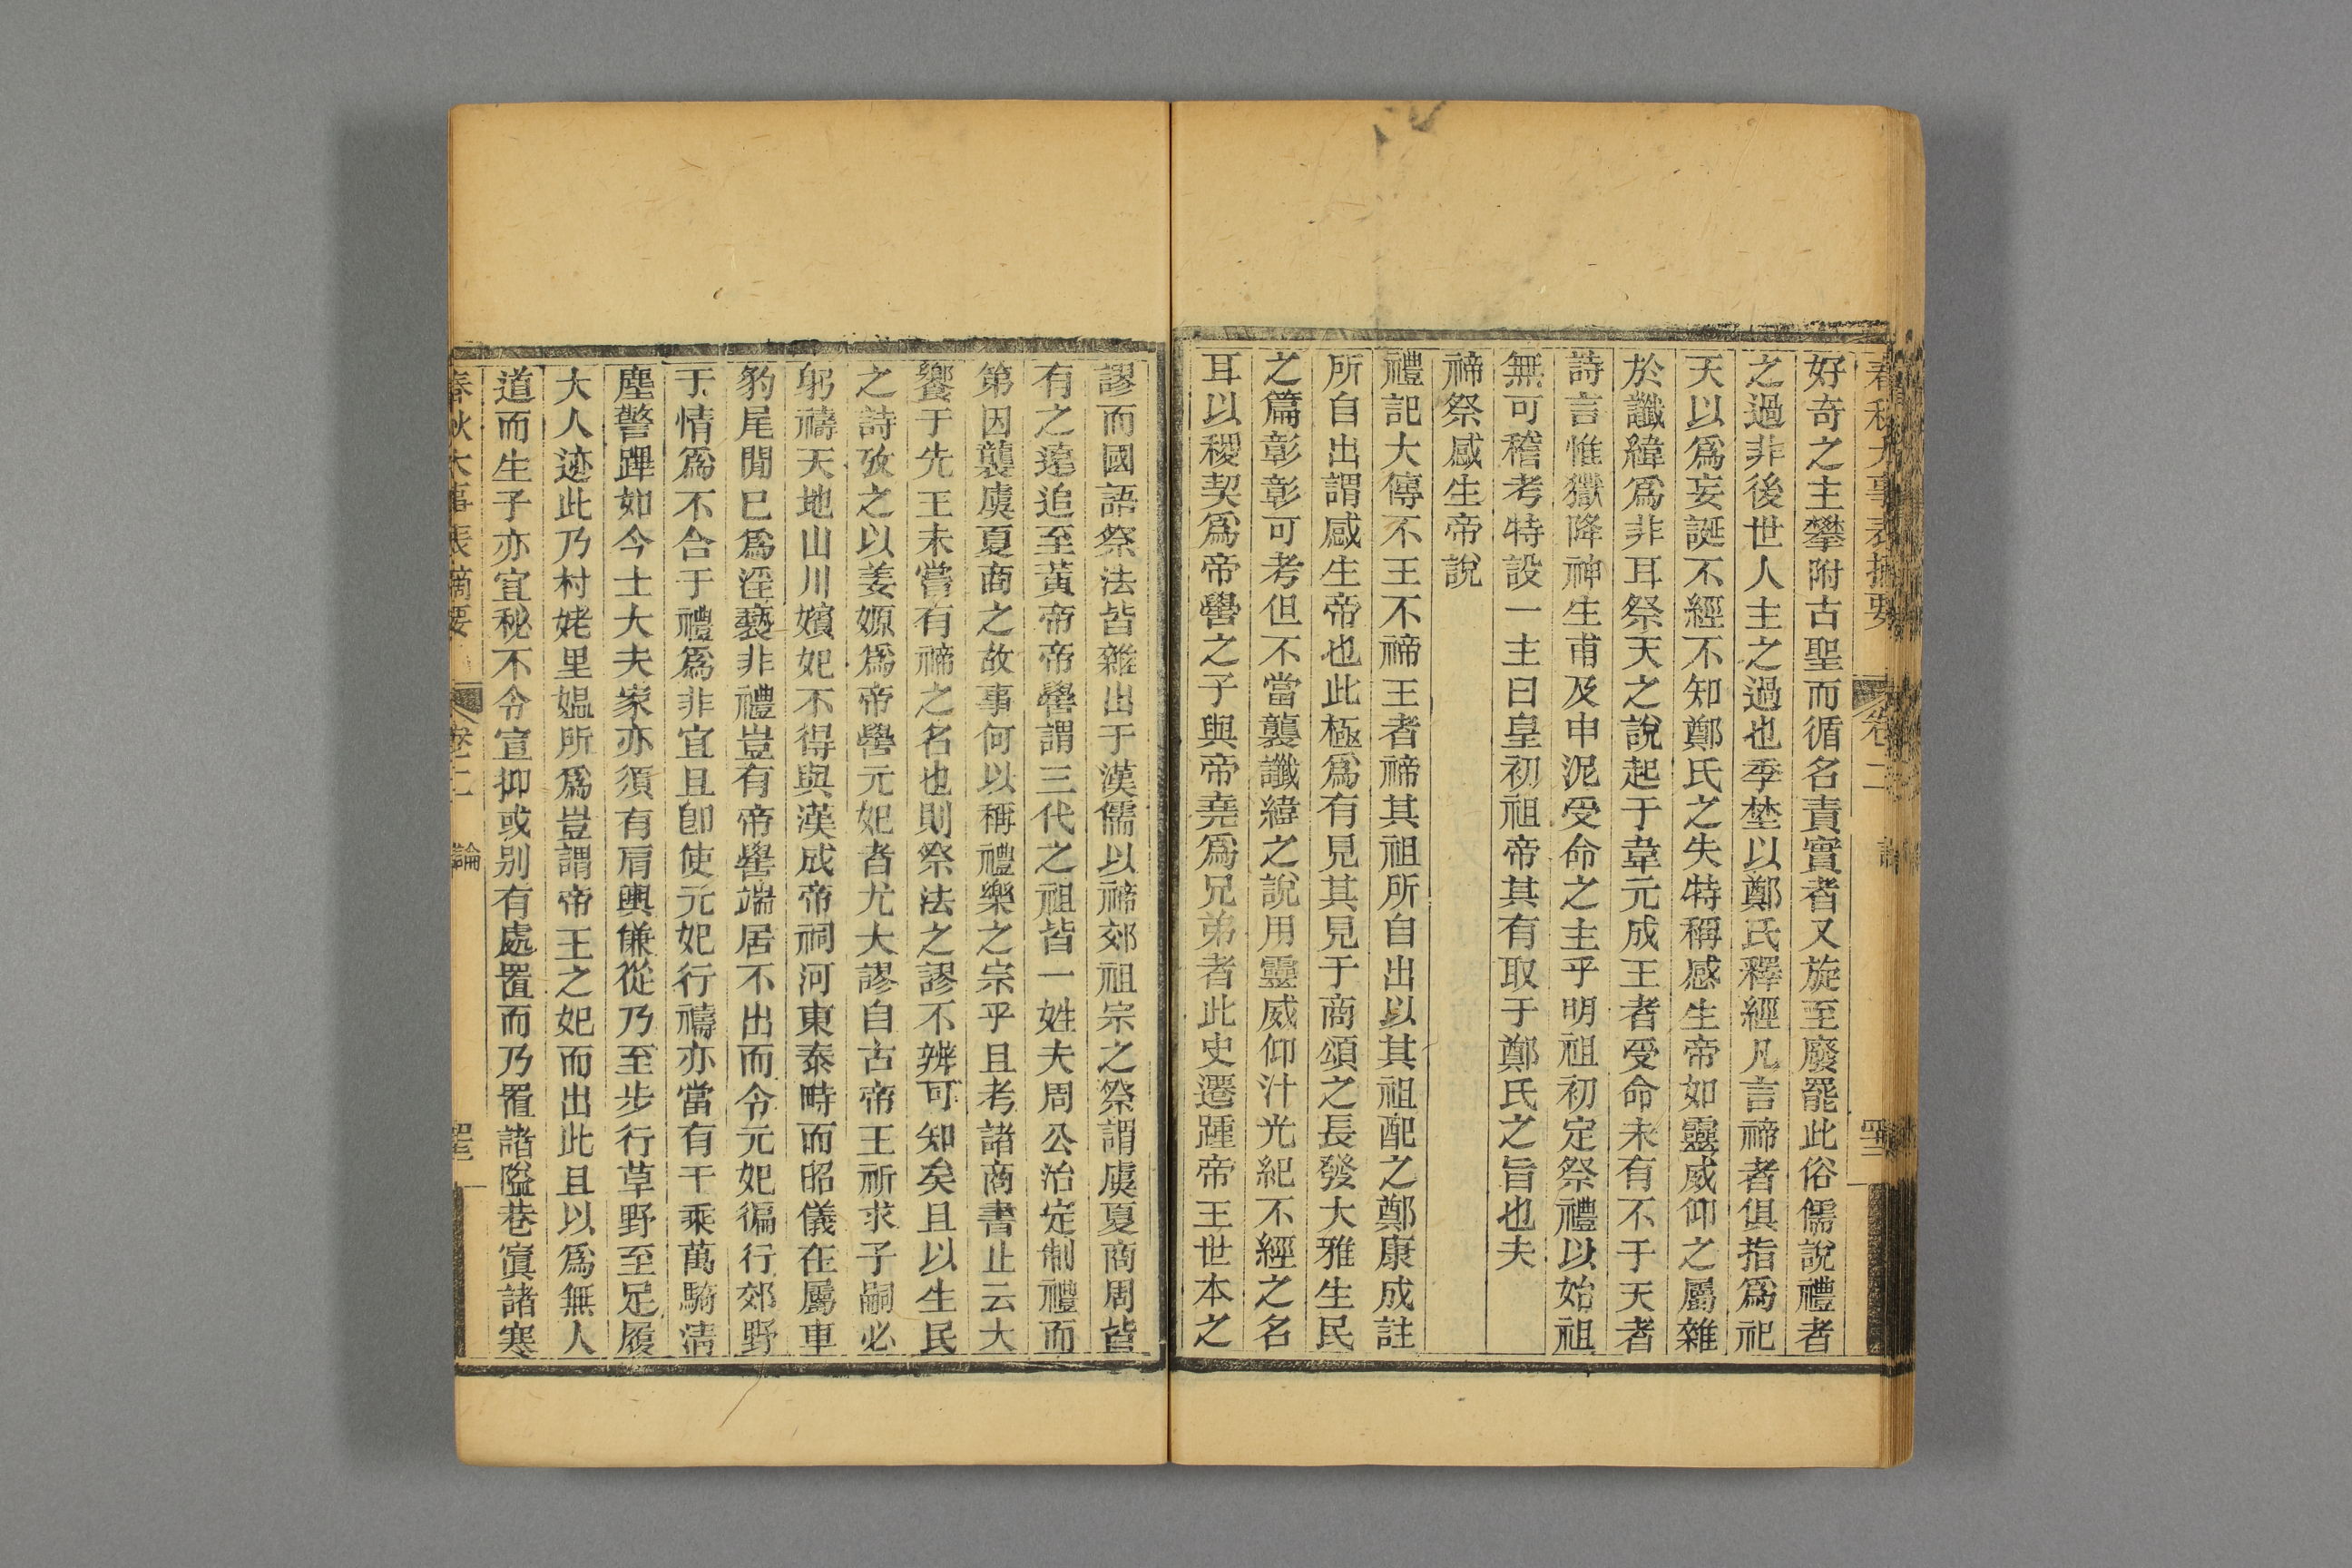 春秋大事表摘要 卷二 論
好奇之主攀附古聖而循名責實者又旋至廢罷此俗儒說禮者
之過非後世人主之過也季埜以鄭氏釋經凡言禘者俱指爲祀
天以爲妄誕不經不知鄭氏之失特稱感生帝如靈威仰之屬雜
於讖緯爲非耳祭天之說起于韋元成王者受命未有不于天者
詩言惟嶽降神生甫及申況受命之主乎明祖初定祭禮以始祖
無可稽考特設一主曰皇初祖帝其有取于鄭氏之旨也夫
禘祭感生帝說
禮記大傳不王不禘王者禘其祖所自出以其祖配之鄭康成註
所自出謂感生帝也此極爲有見其見于商頌之長發大雅生民
之篇彰彰可考但不當襲讖緯之說用靈威仰汁光紀不經之名
耳以稷契爲帝嚳之子與帝堯爲兄弟者此史遷踵帝王世本之
謬而國語祭法皆雜出于漢儒以禘郊祖宗之祭謂虞夏商周皆
有之遠追至黃帝帝嚳謂三代之祖皆一姓夫周公治定制禮而
第因襲虞夏商之故事何以稱禮樂之宗乎且考諸商書止云大
饗于先王未嘗有禘之名也則祭法之謬不辨可知矣且以生民
之詩攷之以姜嫄爲帝嚳元妃者尤大謬自古帝王祈求子嗣必
躬禱天地山川嬪妃不得與漢成帝祠河東泰畤而昭儀在屬車
豹尾間已爲淫褻非禮豈有帝嚳端居不出而令元妃徧行郊野
于情爲不合于禮爲非宜且卽使元妃行禱亦當有千乘萬騎淸
塵警蹕如今士大夫家亦須有肩輿傔從乃至步行草野至足履
大人迹此乃村姥里媼所爲豈謂帝王之妃而出此且以爲無人
道而生子亦宜秘不令宣抑或別有處置而乃置諸隘巷寘諸寒
春秋大事表摘要 卷二 論